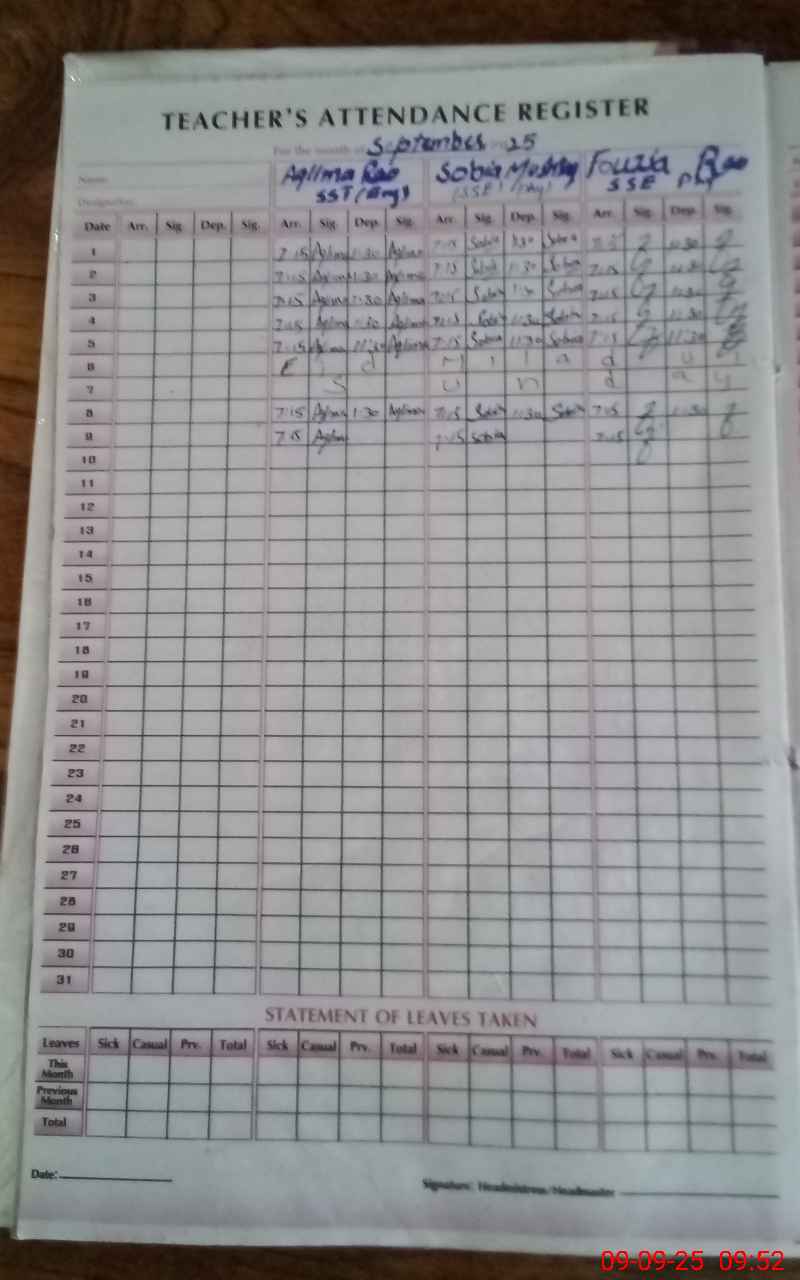 TEACHER'S ATTENDANCE REGISTER
For the month of September 25
Name:
Aqlima Rao Sobia Mushtaq Fouzia Rao
Designation:
SST (Eng) (SSE) (Eng) SSE
Date Arr. Sig. Dep. Sig. Arr. Sig. Dep. Sig. Arr. Sig. Dep. Sig. Arr. Sig. Dep. Sig.
1 7:15 Aqlima 1:30 Aqlima 7:15 Sobia 1:30 Sobia 11:30
2 7:15 Aqlima 1:30 Aqlima 7:15 Sobia 1:30 Sobia 7:15 11:30
3 7:15 Aqlima 1:30 Aqlima 7:15 Sobia Sobia 7:15 11:30
4 7:15 Aqlima 1:30 Aqlima 7:15 Sobia 11:30 Sobia 7:15 11:30
5 7:15 Aqlima 11:30 Aqlima 7:15 Sobia 11:30 Sobia 7:15 11:30
6 E i d M i l a d u
7 S u n d a y
8 7:15 Aqlima 1:30 Aqlima 7:15 Sobia 1:30 Sobia 7:15 11:30
9 7:15 Aqlima 7:15 Sobia 7:15
10
11
12
13
14
15
16
17
18
19
20
21
22
23
24
25
26
27
28
29
30
31
STATEMENT OF LEAVES TAKEN
Leaves Sick Casual Prv. Total Sick Casual Prv. Total Sick Casual Prv. Total Sick Casual Prv. Total
This Month
Previous Month
Total
Date:
Signature: Headmistress/Headmaster
09-09-25 09:52